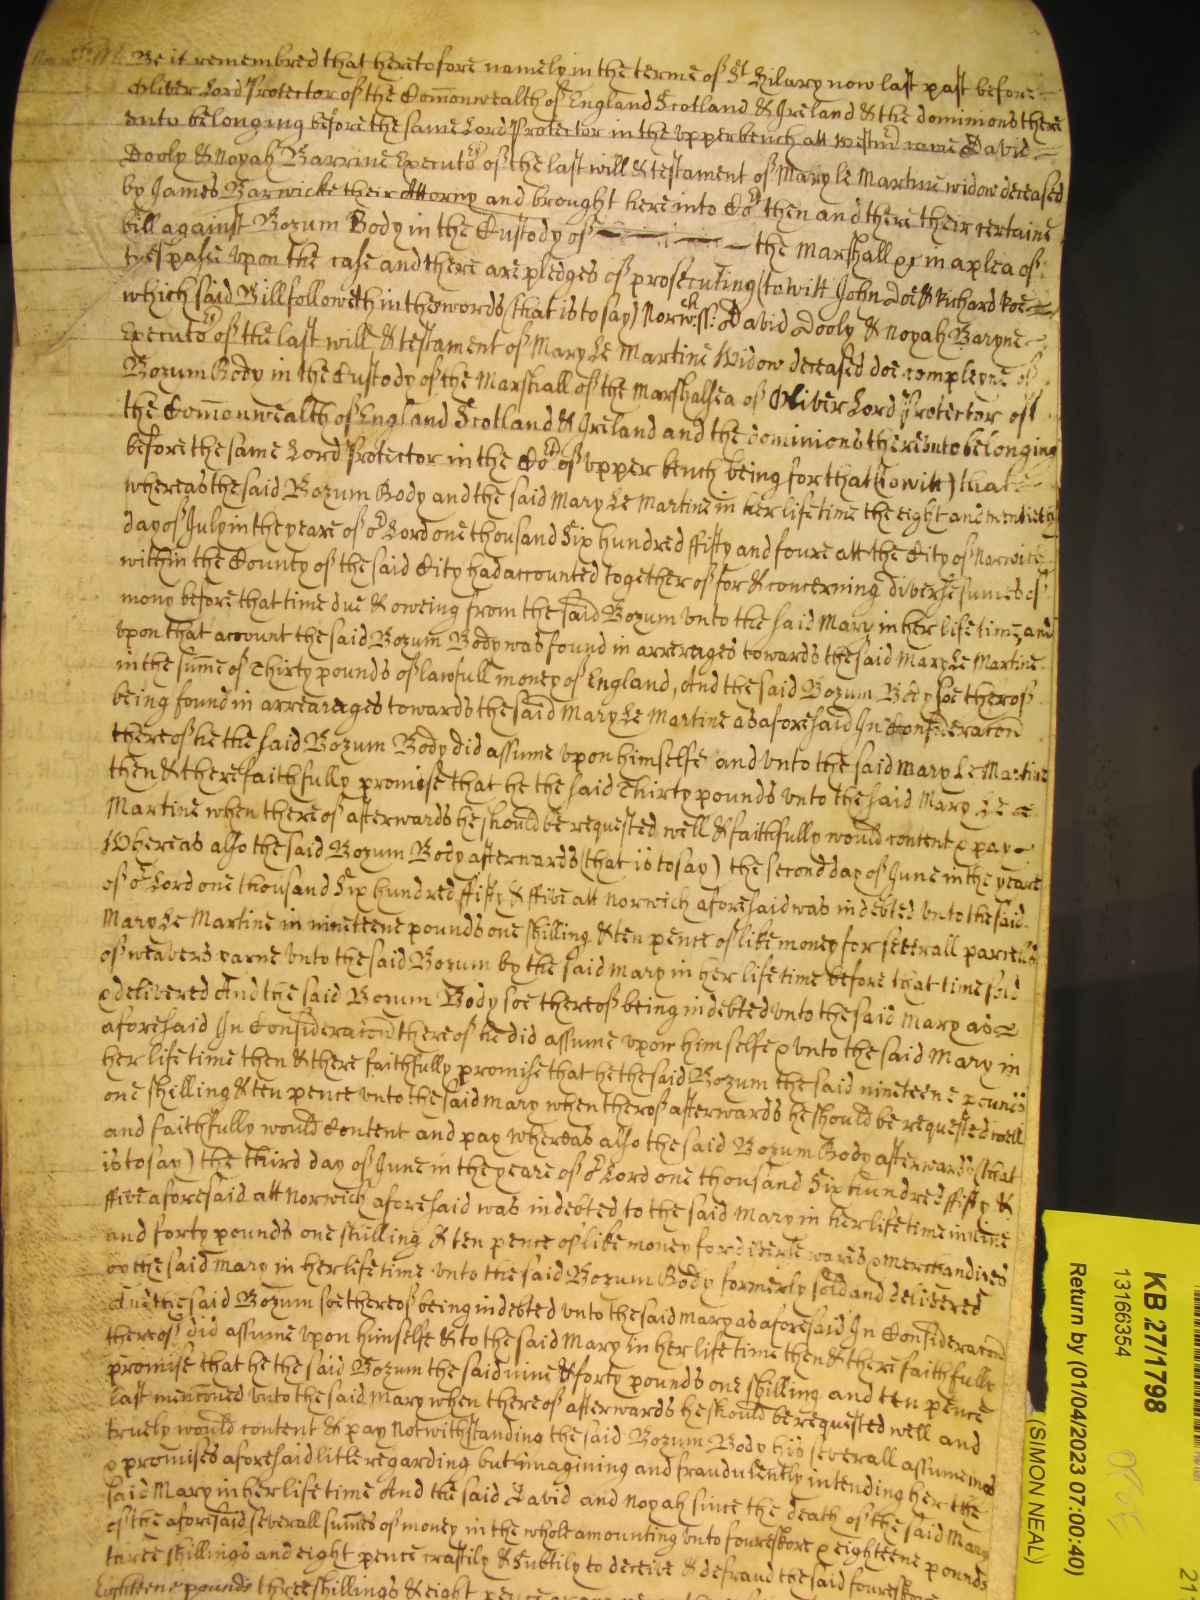 Be it remembred that heretofore namely in the terme of St Hilary now last past before
Oliver Lord Protector of the Comonwealth of England Scotland & Ireland & the dominions there
unto belonging before the same Lord Protector in the upper bench att Westmr came David
Dooly & Noyah Barrine Executors of the last will & testament of Mary le Martine widow deceased
by James Barwicke their Attorny and brought here into Cort then and there their certaine
bill against Bozum Body in the Custody of the Marshall &c in a plea of
trespasse upon the case and there are pledges of prosecuting (to witt John Doe & Richard Roe
which said Bill followeth in these words (that is to say) Norwch ss: David Dooly & Noyah Baryne
Executors of the last will & testament of Mary Le Martine Widow deceased doe compleyne of
Bozum Body in the Custody of the Marshall of the Marshalsea of Oliver Lord Protector of
the Comonwealth of England Scotland & Ireland and the dominions thereunto belonging
before the same Lord Protector in the Cort of upper bench being for that (to witt) that
whereas the said Bozum Body and the said Mary Le Martine in her life time the eight and twentieth
day of July in the yeare of or Lord one thousand Six hundred fifty and foure att the City of Norwich
within the County of the said City had accounted together of for & concerning diverse sumes of
mony before that time due & oweing from the said Bozum unto the said Mary in her life time and
upon that account the said Bozum Body was found in arrerages towards the said Mary Le Martine
in the sume of Thirty pounds of lawfull money of England, And the said Bozum Body soe therof
being found in arrearages towards the said Mary Le Martine as aforesaid In Consideracon
thereof he the said Bozum Body did assume upon himselfe and unto the said Mary Le Martine
then & there faithfully promise that he the said Thirty pounds unto the said Mary Le
Martine when thereof afterwards he should be requested well & faithfully would content & pay
Whereas also the said Bozum Body afterwards (that is to say) the second day of June in the yeare
of or Lord one thousand Six hundred fifty & ffive att Norwich aforesaid was indebted unto the said
Mary Le Martine in nineteene pounds one shilling & ten pence of like money for severall parcells
of weavers yarne unto the said Bozum by the said Mary in her life time before that time sold
& delivered And the said Bozum Body soe thereof being indebted unto the said Mary as
aforesaid In Consideracon thereof he did assume upon himselfe & unto the said Mary in
her life time then & there faithfully promise that he the said Bozum the said nineteene pounds
one shilling & ten pence unto the said Mary when therof afterwards he should be requested well
and faithfully would Content and pay whereas also the said Bozum Body afterwards (that
is to say) the third day of June in the yeare of or Lord one thousand Six hundred fifty &
ffive aforesaid att Norwich aforesaid was indebted to the said Mary in her life time in nine
and forty pounds one shilling & ten pence of like money for diverse wares & merchandizes
by the said Mary in her life time unto the said Bozum Body formerly sold and delivered
And the said Bozum soe thereof being indebted unto the said Mary as aforesaid In Consideracon
thereof did assume upon himselfe & to the said Mary in her life time then & there faithfully
promise that he the said Bozum the said nine & forty pounds one shilling and ten pence
last mencioned unto the said Mary when thereof afterwards he should be requested well and
truely would content & pay Notwithstanding the said Bozum Body his severall assumcions
& promises aforesaid little regarding but imagining and fraudulently intending her the
said Mary in her life time And the said David and Noyah since the death of the said Mary
of the aforesaid severall sumes of money in the whole amounting unto foureskore & eighteene pounds
three shillings and eight pence craftily & subtily to deceive & defraud the said foureskore
Eighteene pounds three shillings & eight pence
KB 27/1798
13166354
Return by (01/04/2023 07:00:40)
(SIMON NEAL)